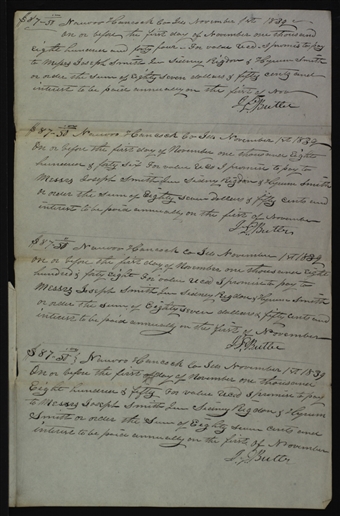 $87-50 Nauvoo Hancock Co Ills November 1st 1839
On or before the first day of November one thousand
eight hundred and forty four For value Recd I promise to pay
to Messrs Joseph Smith Jun Sidney Rigdon & Hyrum Smith
or order the sum of Eighty seven dollars & fifty cents and
interest to be paid annually on the first of Nov
J L Butler
$87-50 Nauvoo Hancock Co Ills November 1st 1839
On or before the first day of November one thousand Eight
hundred & forty six For value Recd I promise to pay to
Messrs Joseph Smith Jun Sidney Rigdon & Hyrum Smith
or order the sum of Eighty seven Dollars & fifty cents and
interest to be paid annually on the first of November
J L Butler
$87-50 Nauvoo Hancock Co Ills November 1st 1839
On or before the first day of November one thousand eight
hundred & forty eight For value Recd I promise to pay to
Messrs Joseph Smith Jun Sidney Rigdon & Hyrum Smith
or order the sum of Eighty seven dollars & fifty cents and
interest to be paid annually on the first of November
J L Butler
$87-50 Nauvoo Hancock Co Ills November 1st 1839
On or before the first day of November one thousand
Eight hundred & fifty For value Recd I promise to pay
to Messrs Joseph Smith Jun Sidney Rigdon & Hyrum
Smith or order the sum of Eighty seven cents and
interest to be paid annually on the first of November
J L Butler